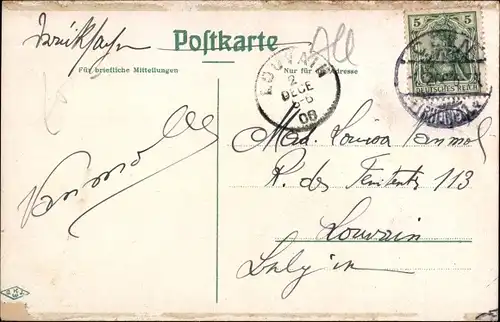 Drucksache
Postkarte
All
Für briefliche Mitteilungen
Nur für die Adresse
5 5
DEUTSCHES REICH
LOUVAIN
2
DECE
08
Mad. Louisa Vanmol
R. des
113
Louvain
Belgien
Vanmol